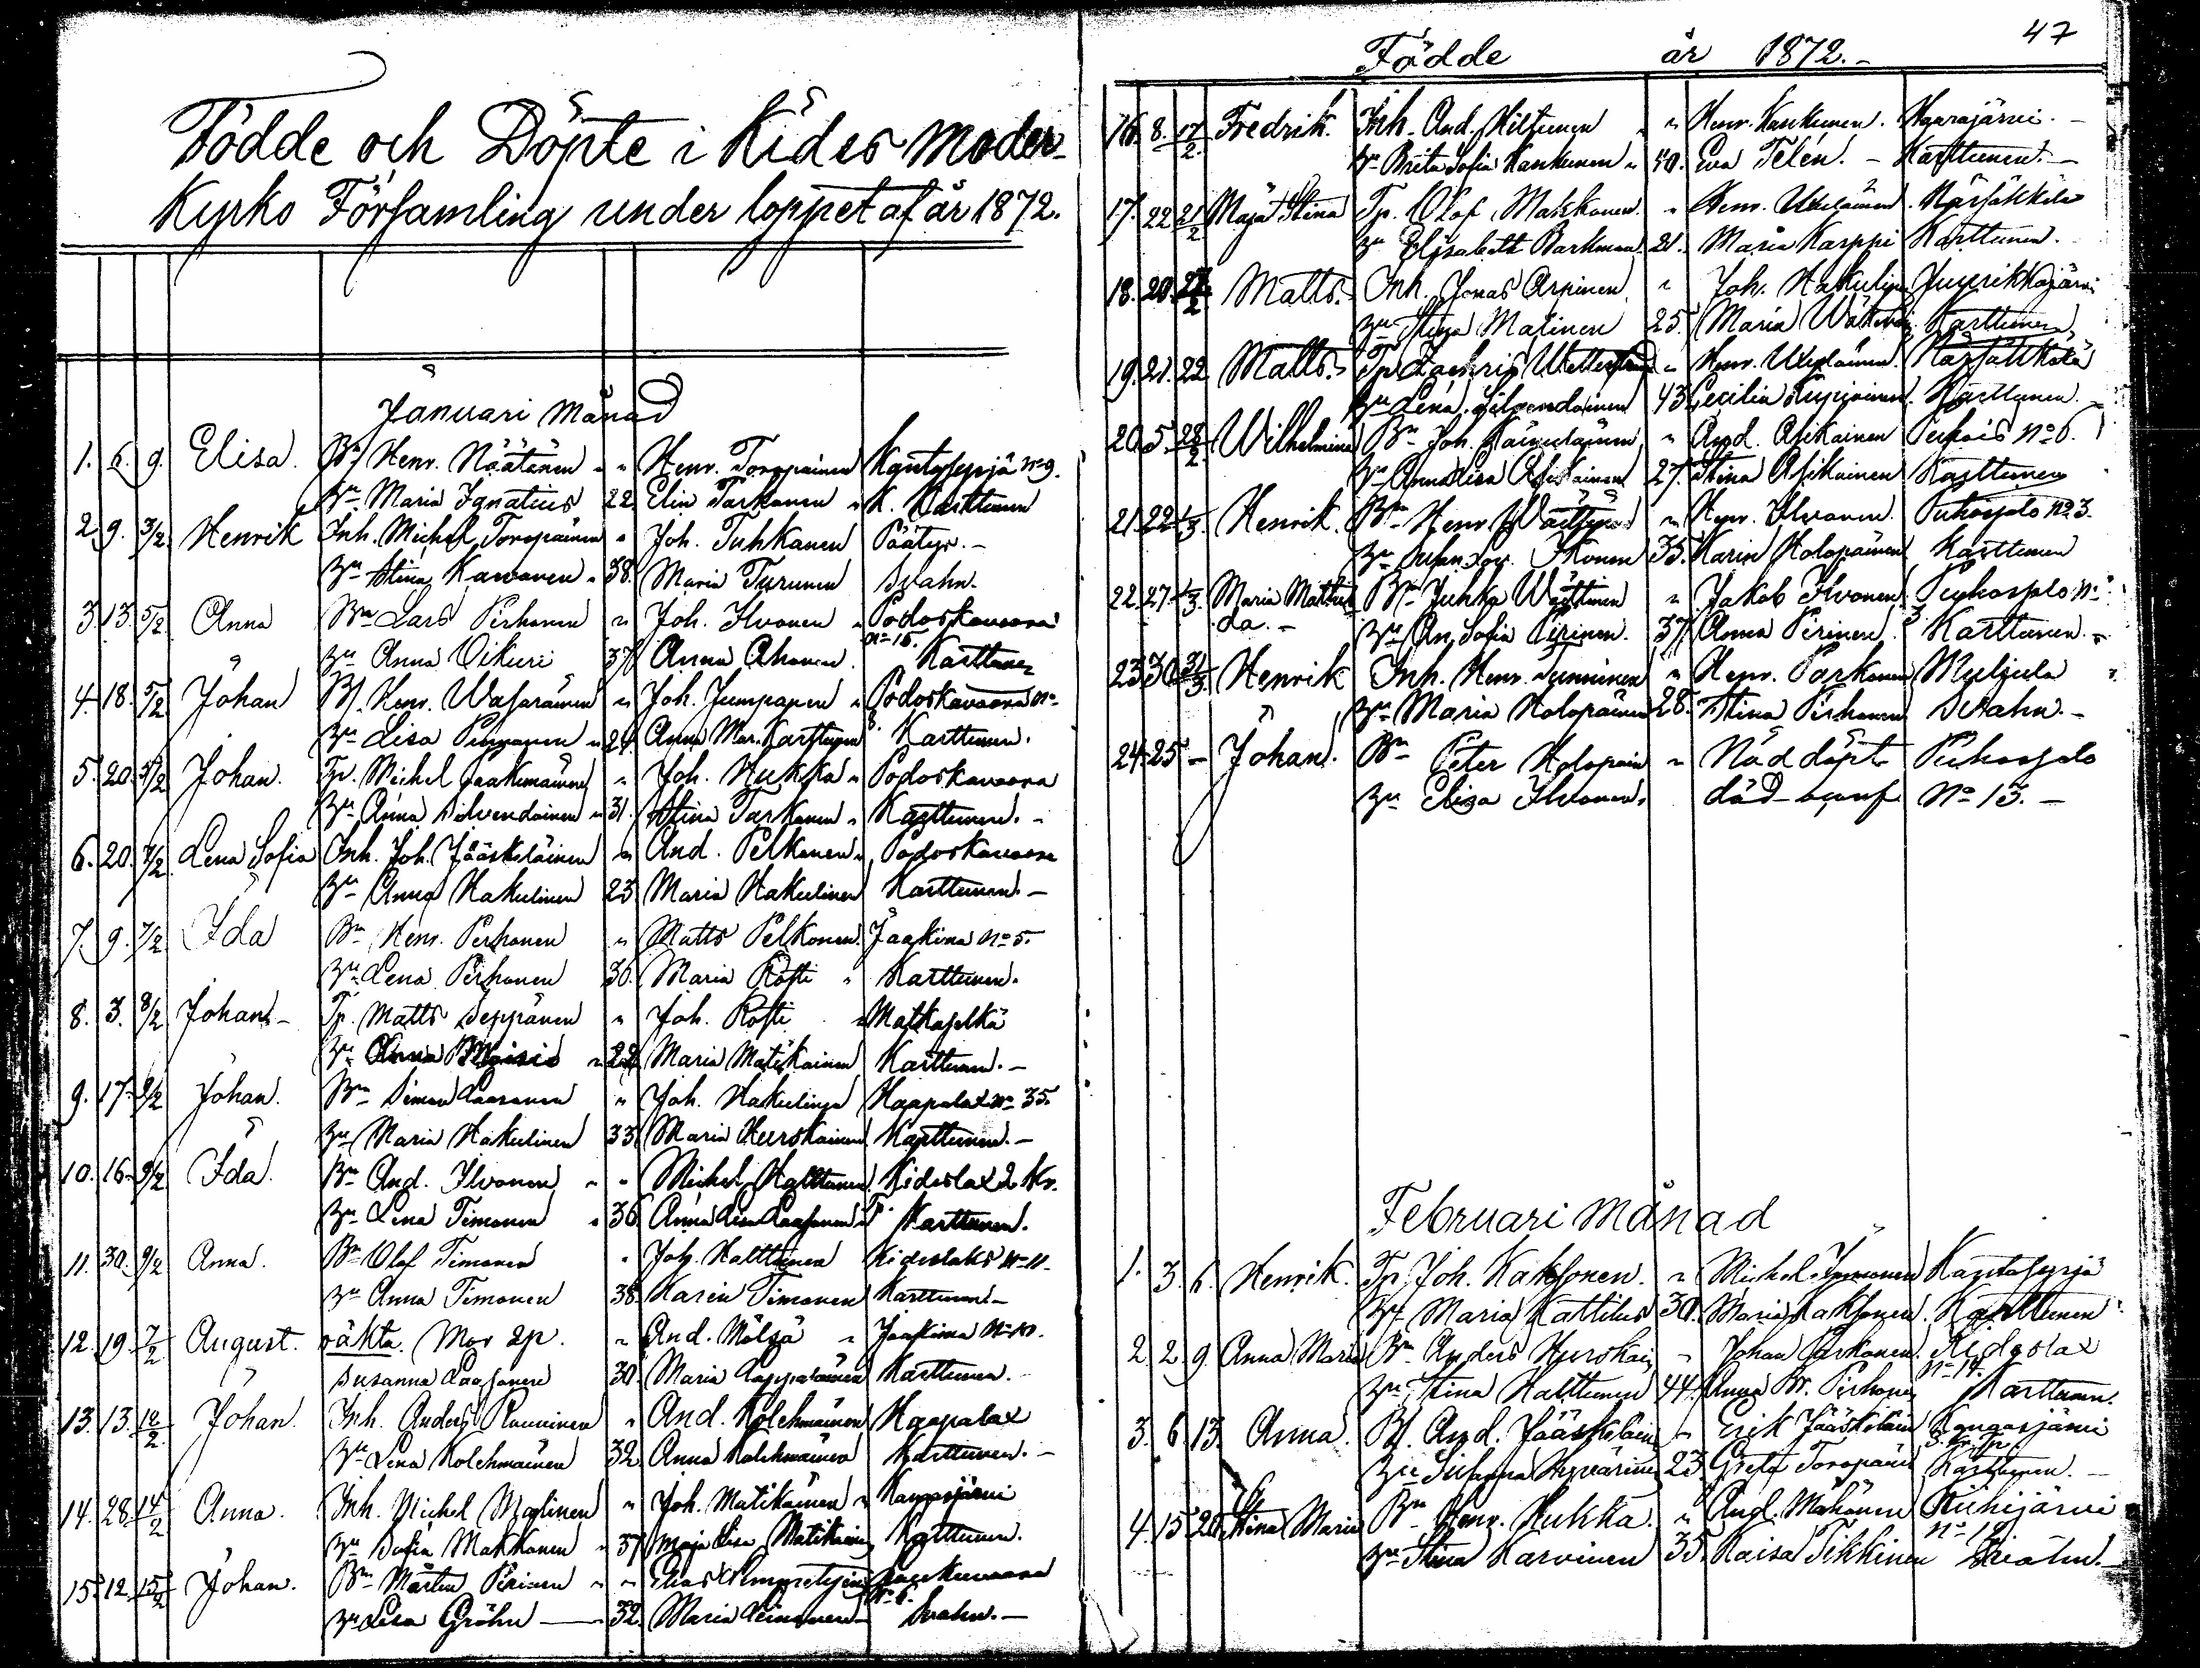 Födde och Döpte i Kides Moder-
Kyrko Församling under loppet af år 1872.
Januari Månad
1. 6. 9. Elisa. Bn Henr. Näätänen " Henr. Toropainen Kantosyrjä No 9.
Hu Maria Ignatius 22 Elin Tarkanen K. Karttunen
2. 9. 3/2 Henrik Inh. Michel Toropainen " Joh. Tuhkanen Päätye.-
Hu Stina Karvanen 38. Maria Turunen Svahn.
3. 13. 5/2 Anna Bn Lars Pirhonen " Joh. Ilvonen Podoskavaara
Hu Anna Oikuri 37 Anna Ahonen No 16. Karttunen
4. 18. 5/2 Johan Henr. Wasarainen " Joh. Jumpanen Podoskavaara No
Hu Lisa 24 Anna Mar. Karttunen 8. Karttunen.
5. 20. 5/2 Johan. Tp. Michel Jaakimainen " Joh. Hukka Podoskavaara
Hu Anna Silvendoinen 31. Stina Tarkanen Karttunen.-
6. 20. 7/2 Lena Sofia Inh. Joh. Jääskeläinen " And. Pelkonen Podoskavaara
Hu Anna Hakulinen 23 Maria Hakulinen Karttunen.-
7. 9. 7/2 Ida Bn Henr. Perhonen " Matts Pelkonen. Jaakima No 5.
Hu Lena Pirhonen 36. Maria Rösti Karttunen.
8. 3. 8/2 Johan- Tp. Matts Seppänen " Joh. Rösti Matkaselkä
Hu Anna 22 Maria Matikainen Karttunen.-
9. 17. 9/2 Johan. Bn Simon Laasonen " Joh. Hakulinen Haapalax No 35.
Hu Maria Hakulinen 33. Maria Hurskainen Karttunen.-
10. 16. 9/2 Ida. Bn And. Ilvonen " Michel Halttunen. Kideslax 2 No.
Hu Lena Timonen 36. Anna Lisa Laasonen Karttunen.
11. 30. 9/2 Anna. Bn Olof Timonen " Joh. Halttunen Kideslaks No 11
Hu Anna Timonen 38. Karin Timonen Karttunen.-
12. 19. 7/2 August. oäkta. Mor Ip. " And. Mölsä Jaakima No 10.
Susanna Laasonen 30. Maria Lappalainen Karttunen.
13. 13. 12/2 Johan. Inh. Anders Rauninen " And. Kolehmainen Haapalax
Hu Lena Kolehmainen 32 Anna Kolehmainen Karttunen.-
14. 28. 14/2 Anna. Inh. Michel Malinen " Joh. Matikainen Kangasjärvi
Hu Sofia Makkonen 37 Maja Lisa Matikainen Karttunen.
15. 12. 15/2 Johan. Bn Mårten Pirinen " Elias
Hu Lisa Gröhn 32. Maria Leinonen No 6. Svahn.-
47
Födde år 1872.-
16. 8. 17/2. Fredrik. Inh. And. Hiltunen " Henr. Kankunen. Haarajärvi.-
Hu Brita Sofia Kankunen 40. Eva Telén.- Karttunen.-
17. 22 21/2 Maja Stina Tp. Olof Makkonen. " Henr. Närsäkkälä
Hu Elisabeth Barkman 21. Maria Karppi Karttunen.
18. 20. 22/2 Matts. Inh. Jonas Arpinen " Joh. Hakulinen Juurikkajärvi
Hu Stina Malinen 25. Maria Karttunen
19. 21. 22 Matts. Tp. Zachris Wetterstrand " Henr. Närsäkkälä
Hu Lena Silvendoinen 43 Cecilia Karttunen.
20. 5. 28/2 Wilhelmina Bn Joh. Kainulainen " And. Asikainen Puhois No 6.
Hu Anna Lisa Asikainen 27. Stina Asikainen Karttunen
21. 22. 1/3. Henrik. Bn Henr. Wäistynen " Henr. Ilvonen. Puhossalo No 3.
Hu Susan Sof. Ikonen 35. Karin Holopainen Karttunen
22. 27. 1/3. Maria Mathil- Bn Jukka Wäättinen " Jakob Ilvonen Puhossalo No
da.- Hu An. Sofia Pirinen. 37 Anna Pirinen. 3 Karttunen.-
23 30 31/3. Henrik Inh. Henr. Sunninen " Henr. Parkonen Muljula
Hu Maria Holopainen 28. Stina Pirhonen Svahn.-
24. 25 - Johan. Bn Peter Holopain " Nöd döpt Puhossalo
Hu Elisa Ilvonen. död No 13.-
Februari Månad
1. 3. 6. Henrik. Tp. Joh. Kaksonen. " Michel Immonen Kantosyrjä
Hu Maria Kattilus 30. Maria Kaksonen. Karttunen
2 2 9. Anna Maria Bn Anders Hurskain " Johan Parkonen. Kideslax
Hu Stina Halttunen 44. Anna Br. Pirhonen No 14. Karttunen.
3. 6 13. Anna. And. Jääskeläin " Erik Jääskeläin Kangasjärvi
Hu Susanna Hyvärinen 23 Greta Toropain Karttunen.-
4. 15 20 Stina Maria Bn Henr. Hukka. " And. Mähönen Riihijärvi
Hu Stina Karvinen 35. Kaisa Tikkinen No 12. Svahn.-